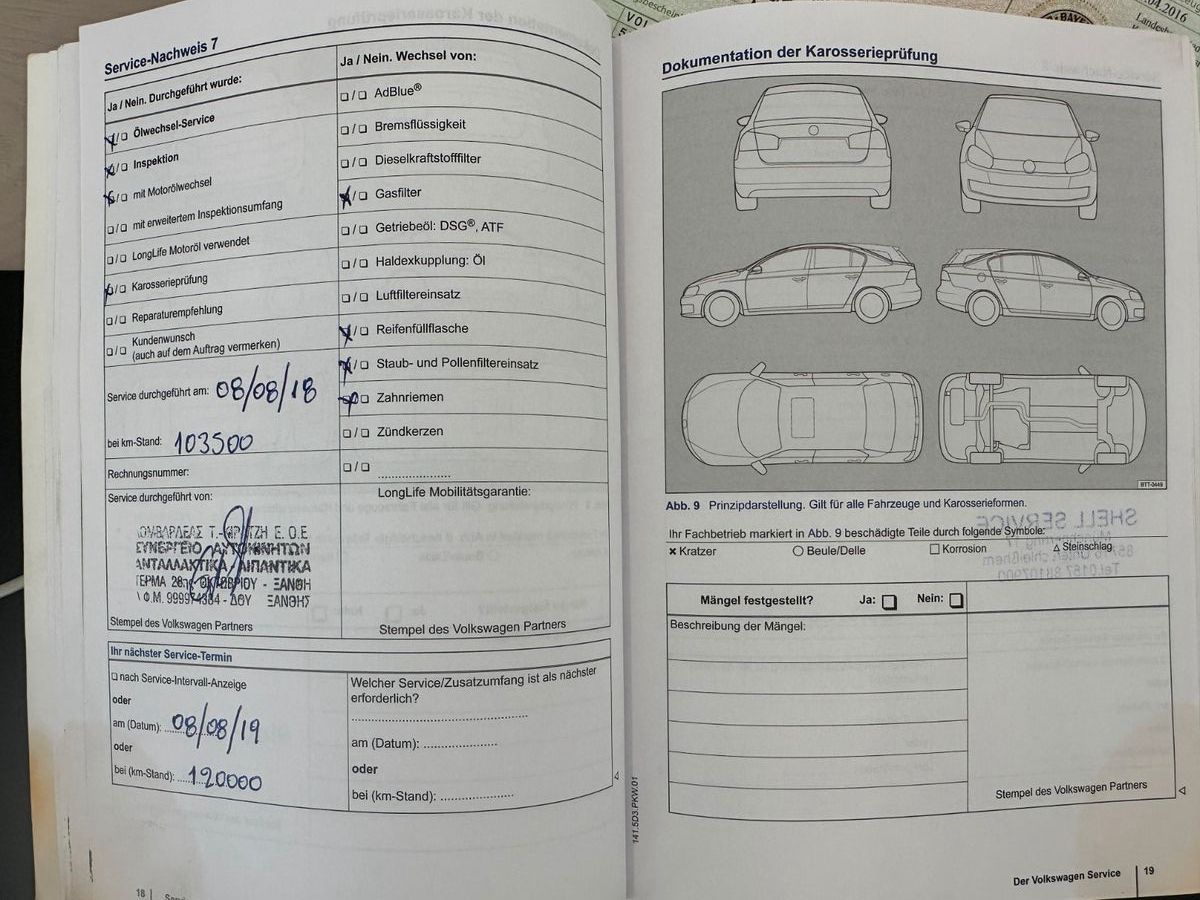 Service-Nachweis 7
Ja / Nein. Durchgeführt wurde:
Ölwechsel-Service
Inspektion
mit Motorölwechsel
mit erweitertem Inspektionsumfang
LongLife Motoröl verwendet
Karosserieprüfung
Reparaturempfehlung
Kundenwunsch
(auch auf dem Auftrag vermerken)
Service durchgeführt am: 08/08/18
bei km-Stand: 103500
Rechnungsnummer:
Service durchgeführt von:
ΣΥΝΕΡΓΕΙΟ ΑΥΤΟΚΙΝΗΤΩΝ
ΑΝΤΑΛΛΑΚΤΙΚΑ - ΛΙΠΑΝΤΙΚΑ
ΤΕΡΜΑ 28ης ΟΚΤΩΒΡΙΟΥ - ΞΑΝΘΗ
Α.Φ.Μ. 999974384 - ΔΟΥ ΞΑΝΘΗΣ
Stempel des Volkswagen Partners
Ja / Nein. Wechsel von:
AdBlue®
Bremsflüssigkeit
Dieselkraftstofffilter
Gasfilter
Getriebeöl: DSG®, ATF
Haldexkupplung: Öl
Luftfiltereinsatz
Reifenfüllflasche
Staub- und Pollenfiltereinsatz
Zahnriemen
Zündkerzen
LongLife Mobilitätsgarantie:
Stempel des Volkswagen Partners
Ihr nächster Service-Termin
nach Service-Intervall-Anzeige
oder
am (Datum): 08/08/19
oder
bei (km-Stand): 120000
Welcher Service/Zusatzumfang ist als nächster
erforderlich?
am (Datum):
oder
bei (km-Stand):
18
141.5D3.PKW.01
04.2016
Dokumentation der Karosserieprüfung
BTT-0449
Abb. 9 Prinzipdarstellung. Gilt für alle Fahrzeuge und Karosserieformen.
Ihr Fachbetrieb markiert in Abb. 9 beschädigte Teile durch folgende Symbole:
Kratzer Beule/Delle Korrosion Steinschlag
SHELL SERVICE
Mängel festgestellt? Ja: Nein:
Beschreibung der Mängel:
Stempel des Volkswagen Partners
Der Volkswagen Service 19